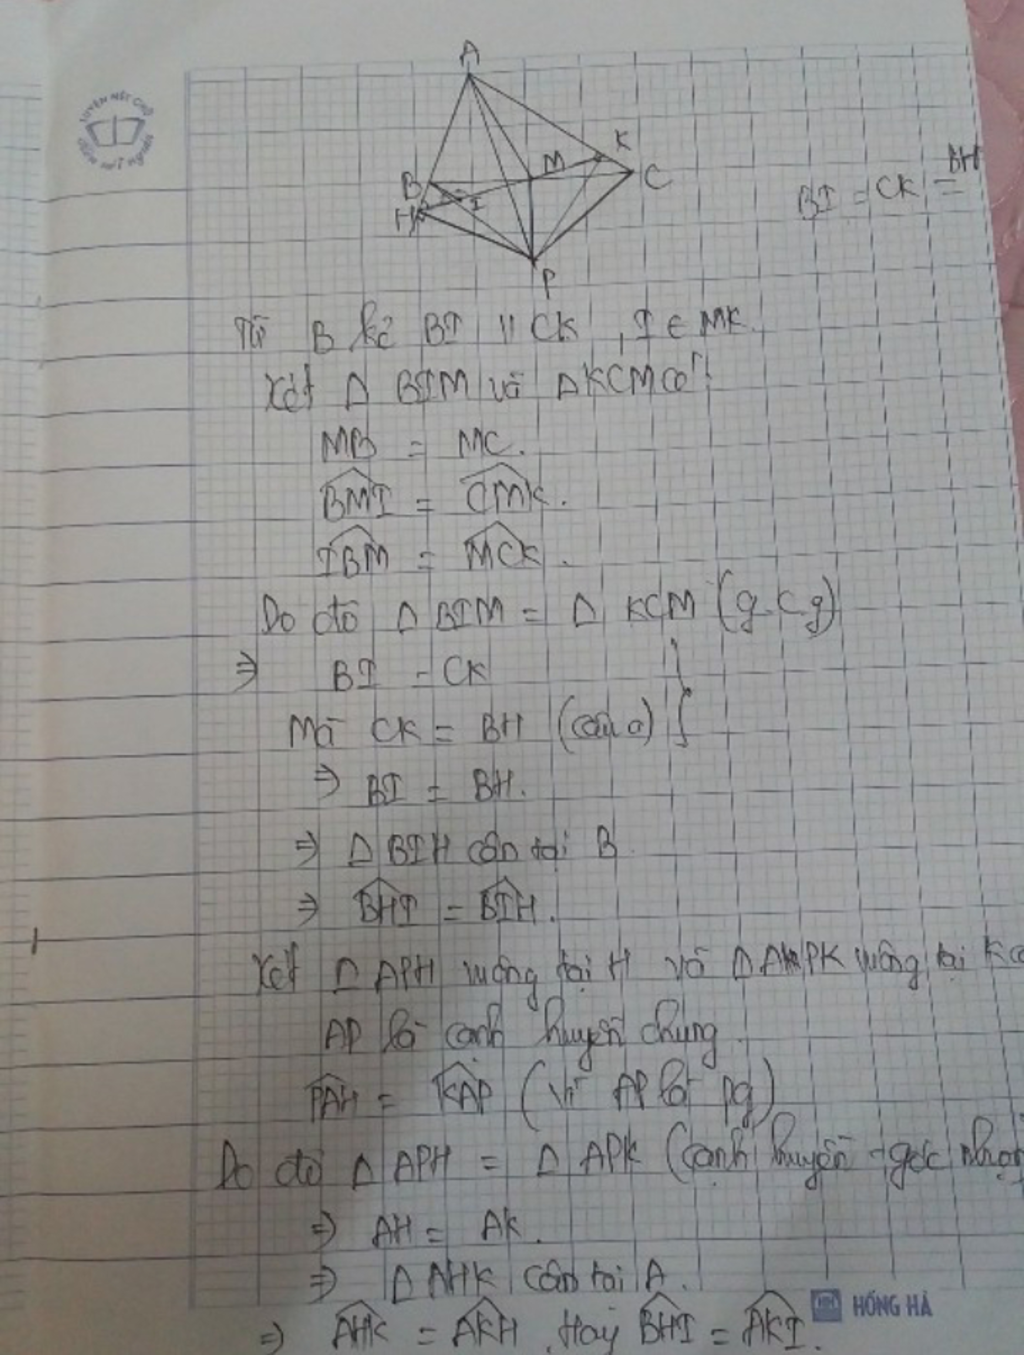 A
K
M
B
C
H
I
P
BI = CK = BH
Từ B kẻ BI // CK, I ∈ MK.
Xét Δ BIM và ΔKCM có:
MB = MC.
BMI = CMK.
IBM = MCK.
Do đó Δ BIM = Δ KCM (g.c.g)
⇒ BI = CK
Mà CK = BH (câu a)
⇒ BI = BH.
⇒ Δ BIH cân tại B
⇒ BHI = BIH.
Xét Δ APH vuông tại H và Δ APK vuông tại K
AP là cạnh huyền chung.
PAH = KAP (vì AP là pg)
Do đó Δ APH = Δ APK (cạnh huyền - góc
⇒ AH = AK.
⇒ Δ AHK cân tại A.
⇒ AHK = AKH. Hay BHI = AKI.
HỒNG HÀ